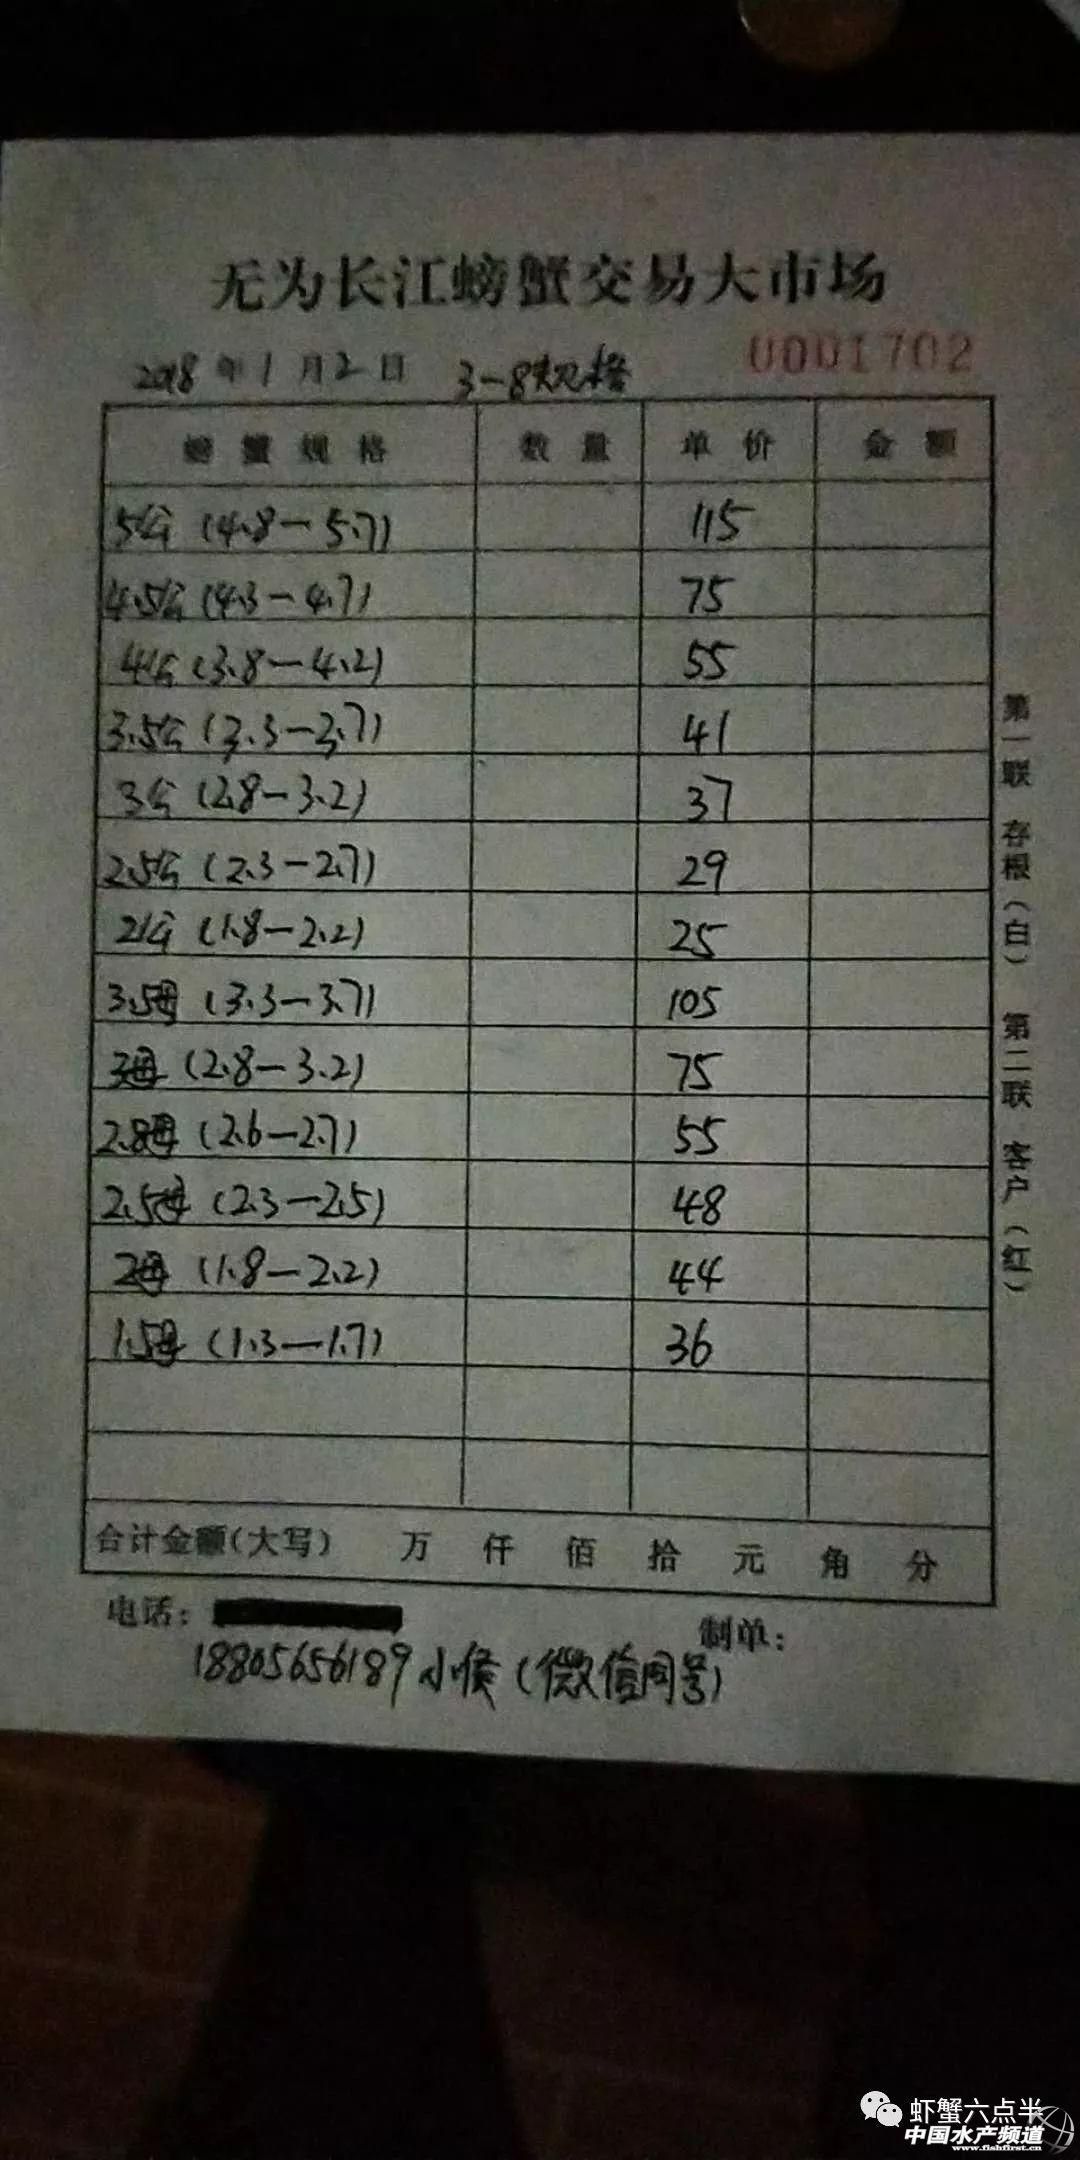 无为长江螃蟹交易大市场
0001702
2018年1月2日 3-8规格
螃蟹规格 数量 单价 金额
5公(4.8-5.7) 115
4.5公(4.3-4.7) 75
4公(3.8-4.2) 55
3.5公(3.3-3.7) 41
3公(2.8-3.2) 37
2.5公(2.3-2.7) 29
2公(1.8-2.2) 25
3.5母(3.3-3.7) 105
3母(2.8-3.2) 75
2.8母(2.6-2.7) 55
2.5母(2.3-2.5) 48
2母(1.8-2.2) 44
1.5母(1.3-1.7) 36
合计金额(大写) 万 仟 佰 拾 元 角 分
电话: 制单:
18805656189小侯(微信同号)
第一联 存根(白) 第二联 客户(红)
虾蟹六点半
中国水产频道
www.fishfirst.cn